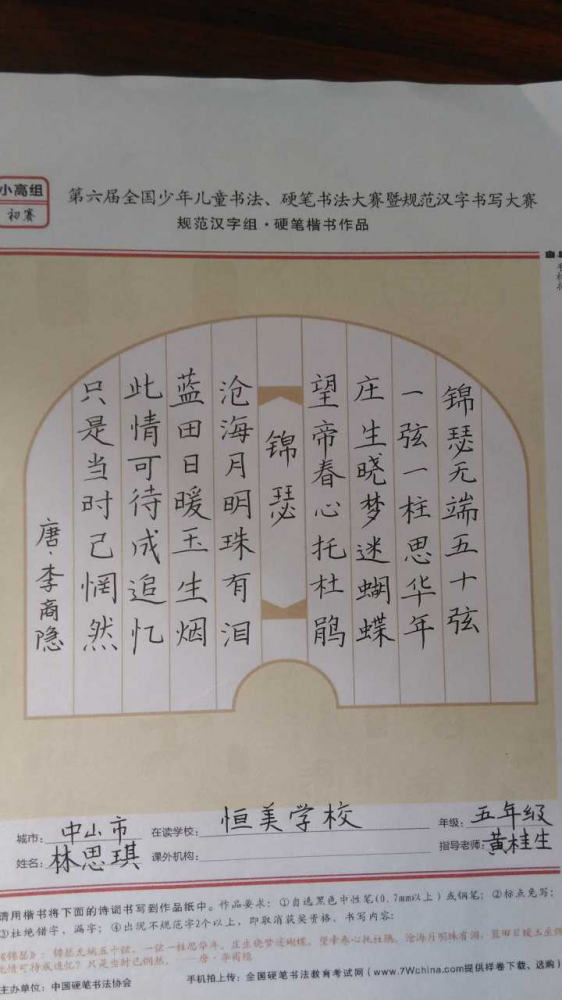 小高组
初赛
第六届全国少年儿童书法、硬笔书法大赛暨规范汉字书写大赛
规范汉字组·硬笔楷书作品
锦瑟无端五十弦
一弦一柱思华年
庄生晓梦迷蝴蝶
望帝春心托杜鹃
锦瑟
沧海月明珠有泪
蓝田日暖玉生烟
此情可待成追忆
只是当时已惘然
唐·李商隐
城市：中山市 在读学校：恒美学校 年级：五年级
姓名：林思琪 课外机构： 指导老师：黄桂生
请用楷书将下面的诗词书写到作品纸中。作品要求：①自选黑色中性笔(0.7mm以上)或钢笔；②标点免写；
③杜绝错字、漏字；④出现不规范字2个以上，即取消获奖资格。书写内容：
《锦瑟》：锦瑟无端五十弦，一弦一柱思华年。庄生晓梦迷蝴蝶，望帝春心托杜鹃。沧海月明珠有泪，蓝田日暖玉生烟
此情可待成追忆？只是当时已惘然。——唐·李商隐
主办单位：中国硬笔书法协会 手机拍上传：全国硬笔书法教育考试网(www.7Wchina.com提供样卷下载、选购)